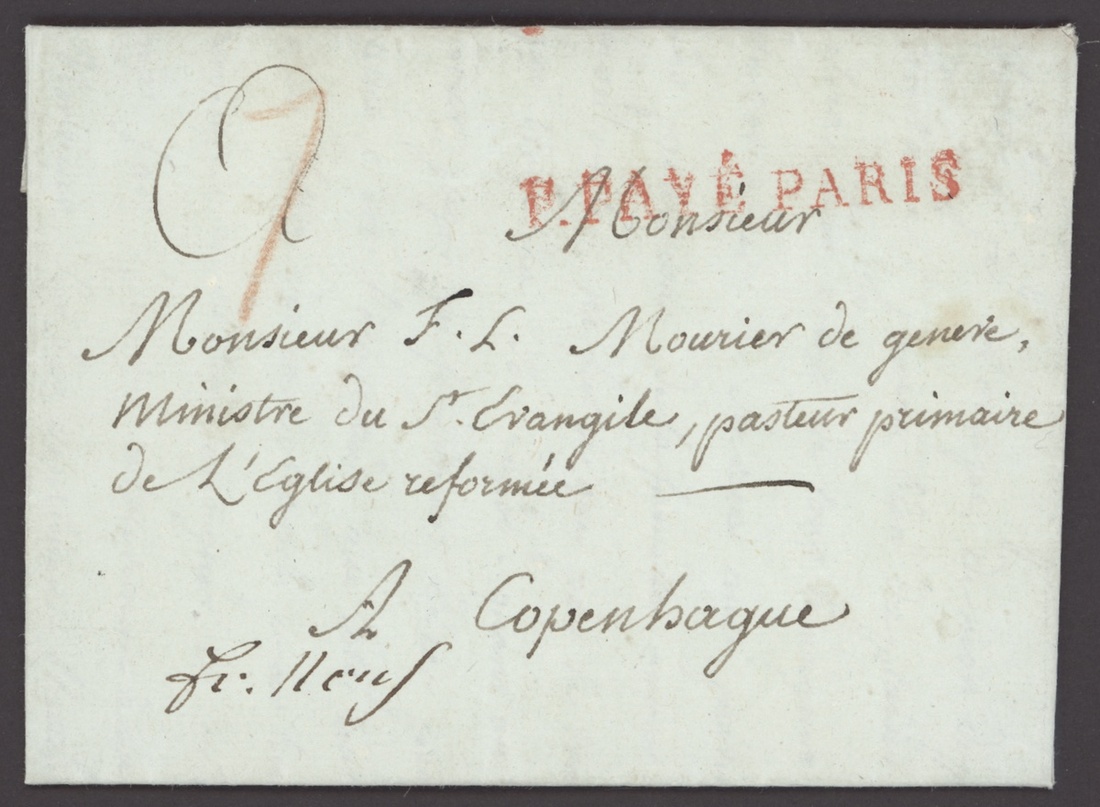 7
P. PAYÉ PARIS
Monsieur
Monsieur F. L. Mourier de geneve,
Ministre du St. Evangile, pasteur primaire
de L'Eglise reformée
A Copenhague
fr.